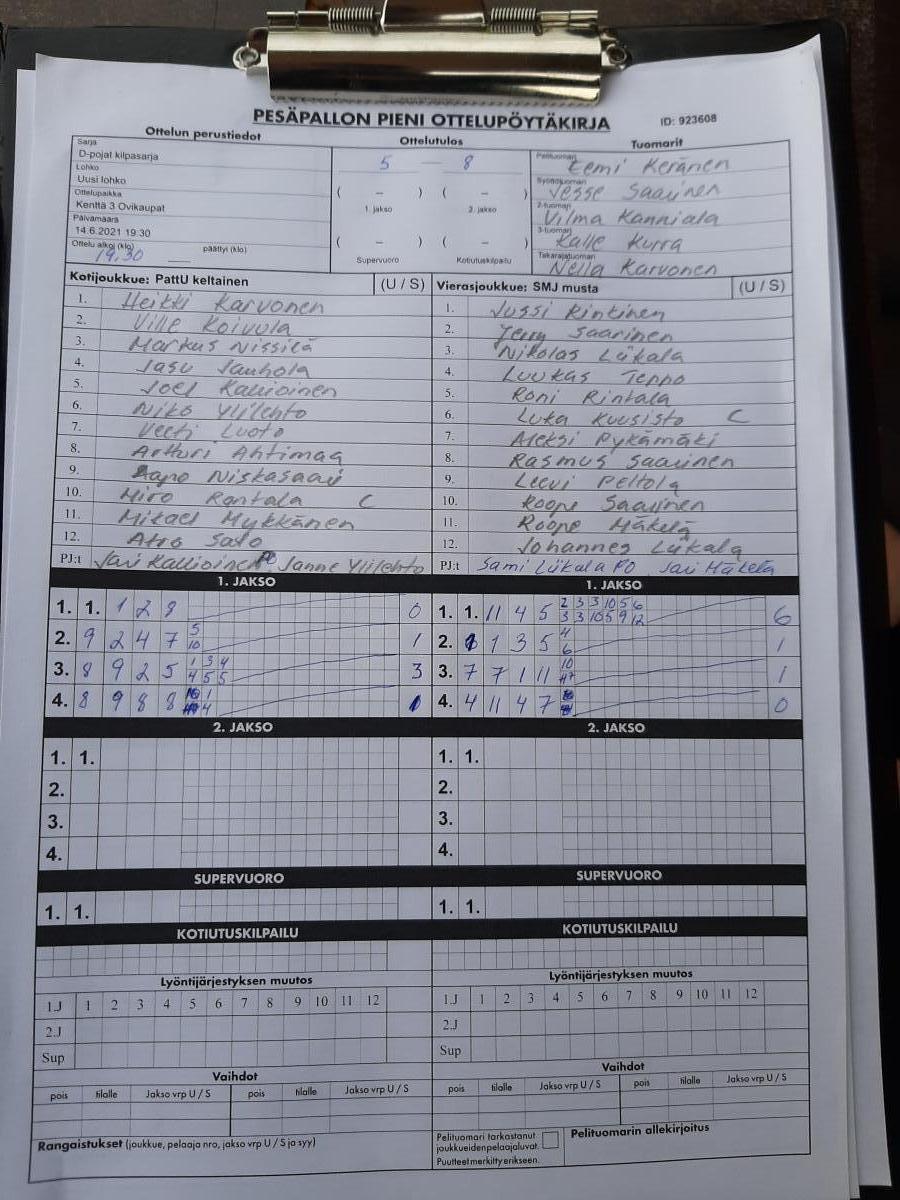 PESÄPALLON PIENI OTTELUPÖYTÄKIRJA ID: 923608
Ottelun perustiedot
Sarja
D-pojat kilpasarja
Lohko
Uusi lohko
Ottelupaikka
Kenttä 3 Ovikaupat
Päivämäärä
14.6.2021 19:30
Ottelu alkoi (klo) päättyi (klo)
19.30
Ottelutulos
5 — 8
( – ) ( – )
1. jakso 2. jakso
( – ) ( – )
Supervuoro Kotiutuskilpailu
Tuomarit
Pelituomari Eemi Keränen
Syöttötuomari Jesse Saarinen
2-tuomari Vilma Kanniala
3-tuomari Kalle Kurra
Takarajatuomari Nella Karvonen
Kotijoukkue: PattU keltainen (U / S)
1. Heikki Karvonen
2. Ville Koivula
3. Markus Nissilä
4. Jasu Jauhola
5. Joel Kallioinen
6. Niko Ylilehto
7. Veeti Luoto
8. Artturi Ahtimaa
9. Aapo Niskasaari
10. Miro Rantala C
11. Mikael Mykkänen
12. Atro Salo
PJ:t Jari Kallioinen Janne Ylilehto
Vierasjoukkue: SMJ musta (U / S)
1. Jussi Rintinen
2. Jerry Saarinen
3. Nikolas Liikala
4. Luukas Teppo
5. Roni Rintala
6. Luka Kuusisto C
7. Aleksi Pykämäki
8. Rasmus Saarinen
9. Leevi Peltola
10. Roope Saarinen
11. Roope Mäkelä
12. Johannes Liikala
PJ:t Sami Liikala PO Jari Mäkelä
1. JAKSO
1. 1. 1 2 8 0
2. 9 2 4 7 5 10 1
3. 8 9 2 5 1 3 4 4 5 5 3
4. 8 9 8 8 1 4 1
1. JAKSO
1. 1. 11 4 5 2 3 3 10 5 6 3 3 10 5 9 12 6
2. 1 3 5 4 6 1
3. 7 7 1 11 10 1
4. 4 11 4 7 0
2. JAKSO
1. 1.
2.
3.
4.
2. JAKSO
1. 1.
2.
3.
4.
SUPERVUORO
1. 1.
SUPERVUORO
1. 1.
KOTIUTUSKILPAILU
KOTIUTUSKILPAILU
Lyöntijärjestyksen muutos
1.J 1 2 3 4 5 6 7 8 9 10 11 12
2.J
Sup
Lyöntijärjestyksen muutos
1.J 1 2 3 4 5 6 7 8 9 10 11 12
2.J
Sup
Vaihdot
pois tilalle Jakso vrp U / S pois tilalle Jakso vrp U / S
Vaihdot
pois tilalle Jakso vrp U / S pois tilalle Jakso vrp U / S
Rangaistukset (joukkue, pelaaja nro, jakso vrp U / S ja syy)
Pelituomari tarkastanut
joukkueiden pelaajaluvat.
Puutteet merkitty erikseen.
Pelituomarin allekirjoitus